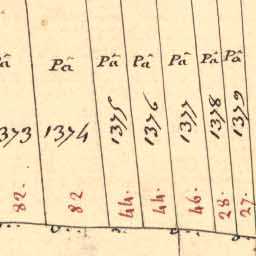 Pâ Pâ Pâ Pâ Pâ Pâ Pâ
1373 1374 1375 1376 1377 1378 1379
82. 82 44. 44. 46. 28. 27.